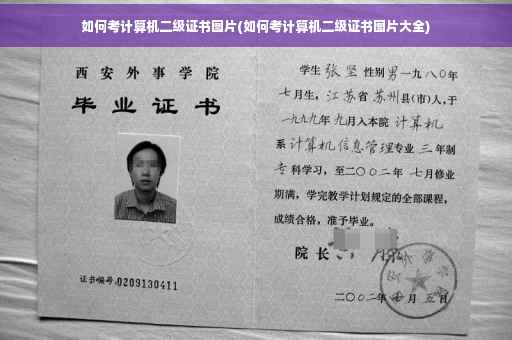 如何考计算机二级证书图片(如何考计算机二级证书图片大全)
西安外事学院
毕业证书
证书编号:0209130411
学生 张坚 性别 男 一九八〇年
七月生，江苏省 苏州县(市)人，于
一九九九年 九月入本院 计算机
系 计算机信息管理专业 三 年制
专科学习，至二〇〇二年 七月修业
期满，学完教学计划规定的全部课程，
成绩合格，准予毕业。
院长
二〇〇二年 月 五日